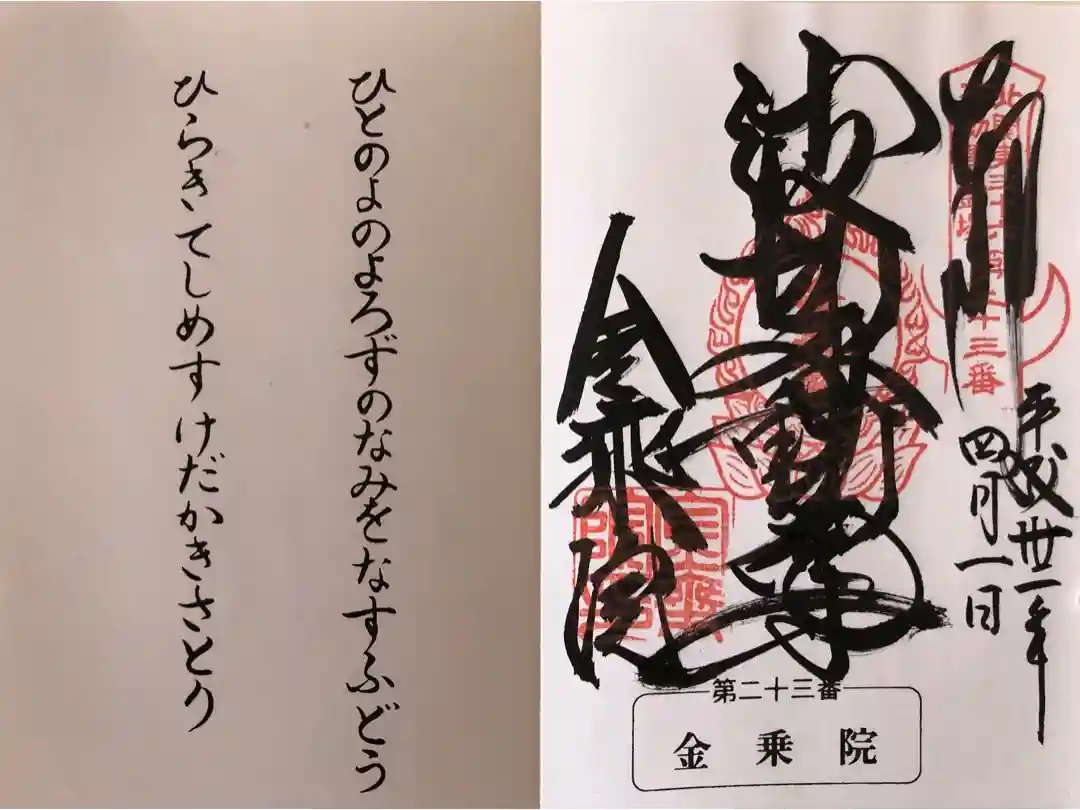 ひとのよのよろずのなみをなすふどう
ひらきてしめすけだかきさとり
平成丗一年
四月一日
波切不動尊
金乗院
第二十三番
金乗院